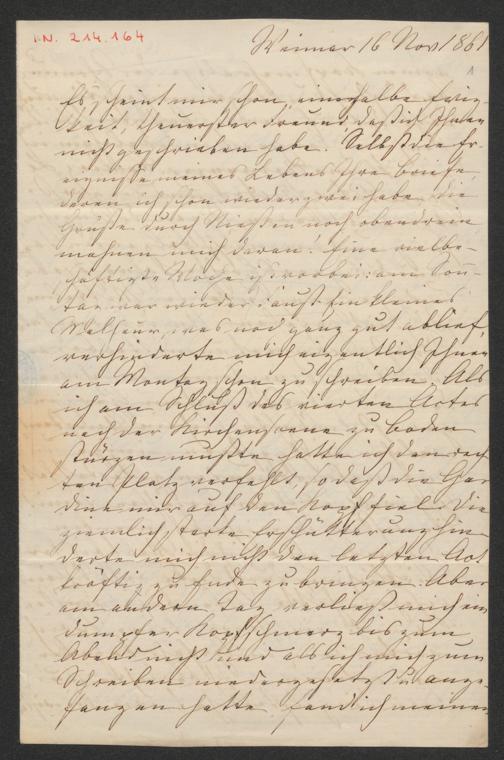 I.N. 214.164
Weimar 16 Nov 1861
1
Es scheint mir schon eine halbe Ewig-
keit, theuerster Freund, daß ich Ihnen
nicht geschrieben habe. Selbst die Er-
eignisse meines Lebens Ihre Briefe,
deren ich schon wieder zwei habe, die
Grüße durch noch obendrein
mahnen mich daran! Eine vielbe-
schäftigte Woche ist vorbei: am Son-
tag war wieder Faust. Ein kleines
Malheur, was noch ganz gut ablief,
verhinderte mich eigentlich Ihnen
am Montag schon zu schreiben. Als
ich am Schluß des vierten Actes
nach der Kirchenscene zu Boden
stürzen mußte hatte ich den rech
ten Platz verfehlt, so daß die Gar
dine mir auf den Kopf fiel. Die
ziemlich starke Erschütterung hin
derte mich nicht den letzten Act
kräftig zu Ende zu bringen. Aber
am andern Tag verließ mich ein
dumpfer Kopfschmerz bis zum
Abend nicht und als ich mich zum
Schreiben niedergesetzt u ange-
fangen hatte fand ich meine